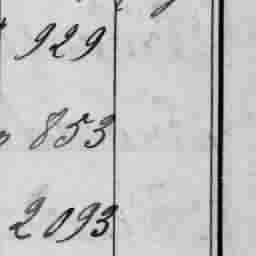 929
853
2093